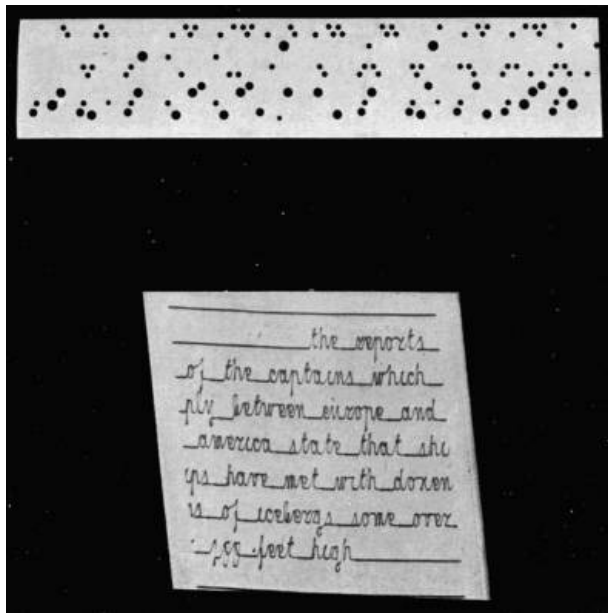 the reports
of the captains which
ply between europe and
america state that shi
ps have met with dozen
s of icebergs some over
feet high